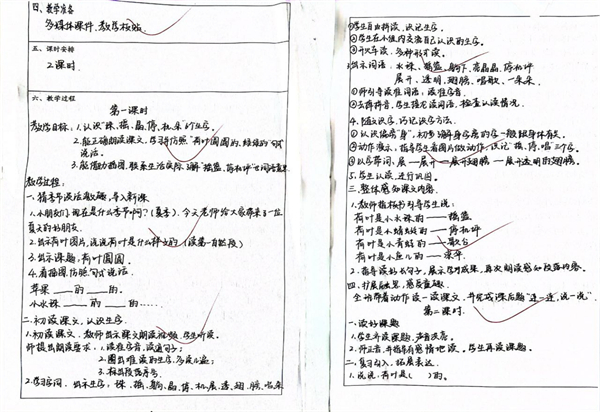 四、教学准备
多媒体课件、教学板贴
五、课时安排
2课时
六、教学过程
第一课时
教学目标：1.认识"珠、摇、晶、停、机、朵"等生字。
2.能正确朗读课文，学习仿照"荷叶圆圆的，绿绿的"句式
说话。
3.能借助插图，联系生活实际，了解"摇篮、停机坪"
教学过程：
一、猜季节谈话激趣，导入新课
1.小朋友们，现在是什么季节啊？（夏季）。今天老师给大家带来了一位
夏天的好朋友。
2.出示荷叶图片，说说荷叶是什么样子的（读第一自然段）
3.出示课题：荷叶圆圆。
4.看插图，仿照句式说话。
苹果____的____的。
小水珠____的____的……
二、初读课文，认识生字。
1.初读课文，教师出示课文朗读视频，学生听读。
师提出朗读要求：1.读准字音，读通句子；
2.圈出难读的生字，多读几遍；
3.标出段落序号。
2.学习字词。出示生字：珠、摇、躺、晶、停、机、展、透、翅、膀、唱、朵
①学生自由拼读，识记生字。
②学生在小组内交流自己认识的生字。
③开火车读，多种形式读。
3.出示词语：水珠、摇篮、躺下、亮晶晶、停机坪
展开、透明、翅膀、唱歌、一朵朵
①师引导读准词语：读准字音。
②去掉拼音，学生接龙读词语，检查认读情况。
4.随文识字，巧记识字方法。
①认识偏旁"身"，初步了解身字旁的字一般跟身体有关。
②动作展示，指导学生看图片做动作，识记"摇、停、唱"三个字。
③以字带词：展——展开——展开翅膀——展开透明的翅膀。
5.学生认读，进行巩固。
三、整体感知课文内容。
1.教师据板书引导学生说：
荷叶是小水珠的——摇篮
荷叶是小蜻蜓的——停机坪
荷叶是小青蛙的——歌台
荷叶是小鱼儿的——凉伞
2.指导读好长句子，展示学习成果，再次朗读感知段落内容。
四、扩展融思，感受童趣。
全班带着动作读一读课文，并完成课后题"连一连，说一说"。
第二课时。
一、读好课题
1.学生齐读课题，声音洪亮。
2.师正音，并指导有感情地读。学生再读课题。
二、复习引入，拓展表达
1.说说，荷叶是（ ）的。